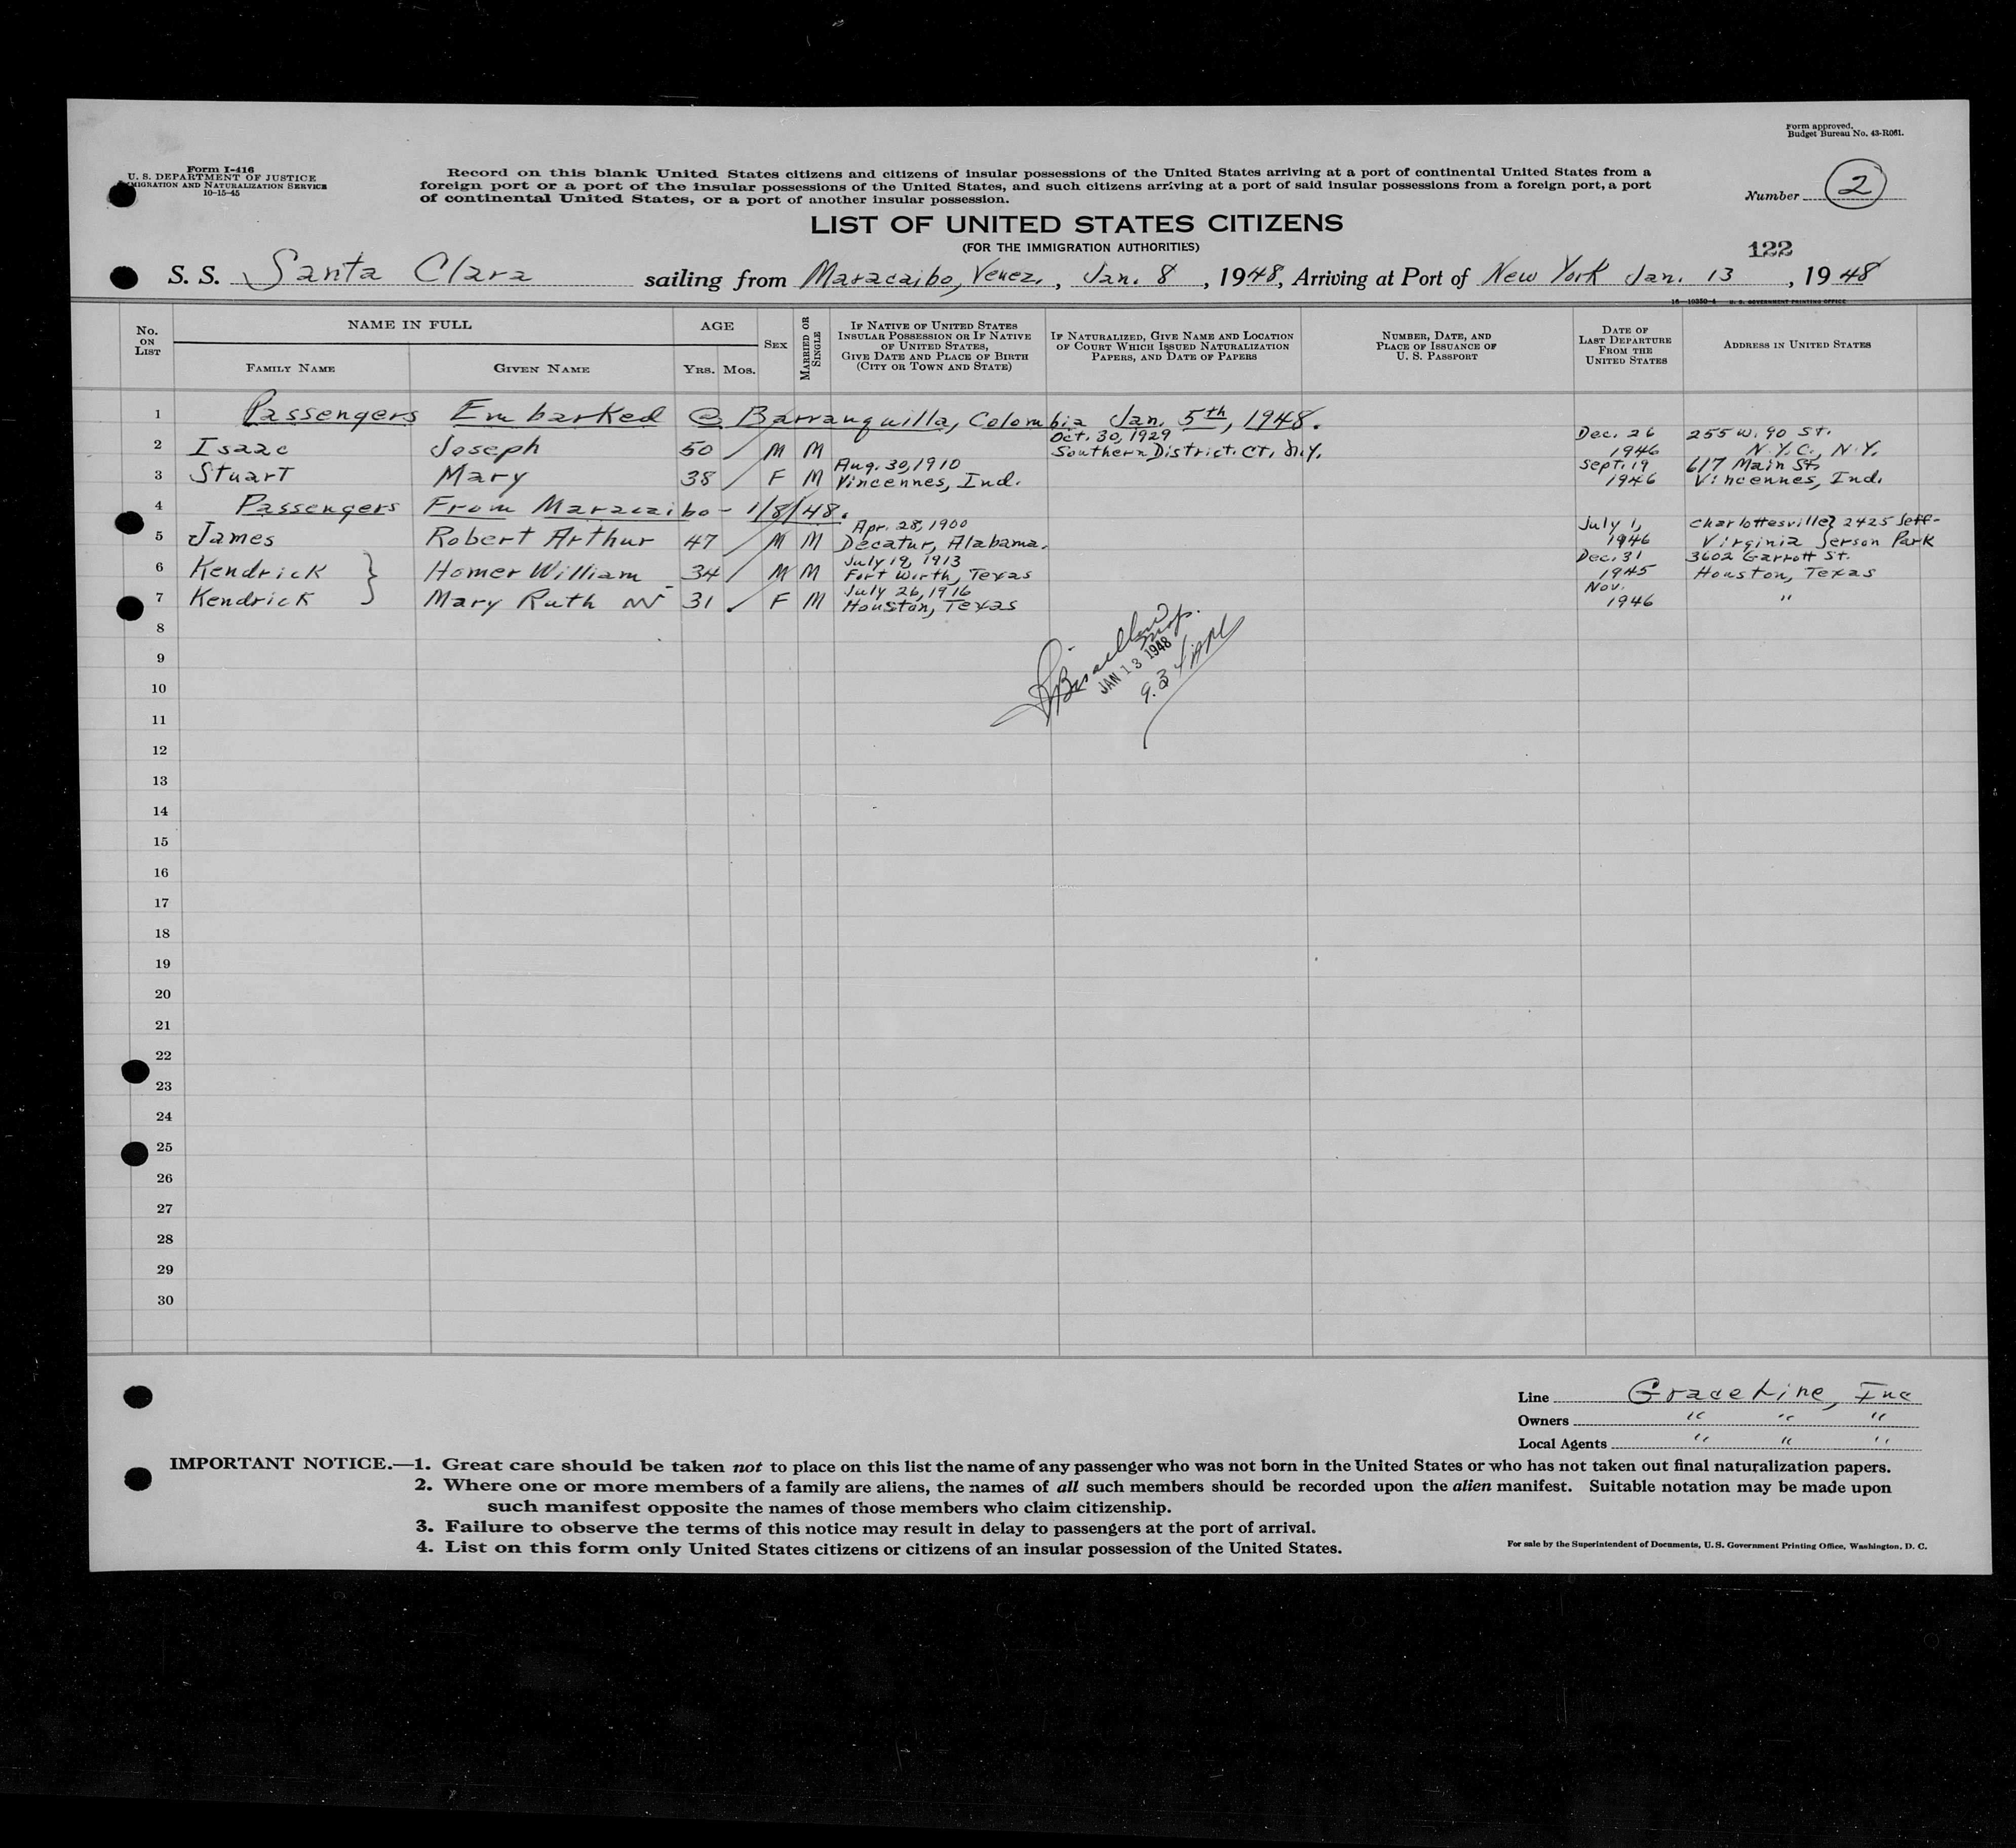 Form approved.
Budget Bureau No. 43-R061.
Form I-416
U. S. DEPARTMENT OF JUSTICE
IMMIGRATION AND NATURALIZATION SERVICE
10-15-45
Record on this blank United States citizens and citizens of insular possessions of the United States arriving at a port of continental United States from a
foreign port or a port of the insular possessions of the United States, and such citizens arriving at a port of said insular possessions from a foreign port, a port
of continental United States, or a port of another insular possession.
Number 2
LIST OF UNITED STATES CITIZENS
(FOR THE IMMIGRATION AUTHORITIES)
122
S. S. Santa Clara sailing from Maracaibo, Venez., Jan. 8, 1948, Arriving at Port of New York Jan. 13, 1948
16—19350-4 U. S. GOVERNMENT PRINTING OFFICE
No. ON LIST
NAME IN FULL
FAMILY NAME
GIVEN NAME
AGE
YRS. MOS.
SEX
MARRIED OR SINGLE
IF NATIVE OF UNITED STATES INSULAR POSSESSION OR IF NATIVE OF UNITED STATES, GIVE DATE AND PLACE OF BIRTH (CITY OR TOWN AND STATE)
IF NATURALIZED, GIVE NAME AND LOCATION OF COURT WHICH ISSUED NATURALIZATION PAPERS, AND DATE OF PAPERS
NUMBER, DATE, AND PLACE OF ISSUANCE OF U. S. PASSPORT
DATE OF LAST DEPARTURE FROM THE UNITED STATES
ADDRESS IN UNITED STATES
1 Passengers Embarked @ Barranquilla, Colombia Jan. 5th, 1948.
2 Isaac Joseph 50 M M Oct. 30, 1929 Southern District. CT, N.Y. Dec. 26 1946 255 W. 90 St. N.Y.C., N.Y.
3 Stuart Mary 38 F M Aug. 30, 1910 Vincennes, Ind. Sept. 19 1946 617 Main St. Vincennes, Ind.
4 Passengers From Maracaibo - 1/8/48.
5 James Robert Arthur 47 M M Apr. 28, 1900 Decatur, Alabama. July 1, 1946 Charlottesville, 2425 Jeff- Virginia ferson Park
6 Kendrick Homer William 34 M M July 19, 1913 Fort Worth, Texas Dec. 31 1945 3602 Garrott St. Houston, Texas
7 Kendrick Mary Ruth 31 F M July 26, 1916 Houston, Texas Nov. 1946 "
8
9
10
11
12
13
14
15
16
17
18
19
20
21
22
23
24
25
26
27
28
29
30
JAN 13 1948
Line Grace Line, Inc
Owners " " "
Local Agents " " "
IMPORTANT NOTICE.—1. Great care should be taken not to place on this list the name of any passenger who was not born in the United States or who has not taken out final naturalization papers.
2. Where one or more members of a family are aliens, the names of all such members should be recorded upon the alien manifest. Suitable notation may be made upon
such manifest opposite the names of those members who claim citizenship.
3. Failure to observe the terms of this notice may result in delay to passengers at the port of arrival.
4. List on this form only United States citizens or citizens of an insular possession of the United States.
For sale by the Superintendent of Documents, U. S. Government Printing Office, Washington, D. C.